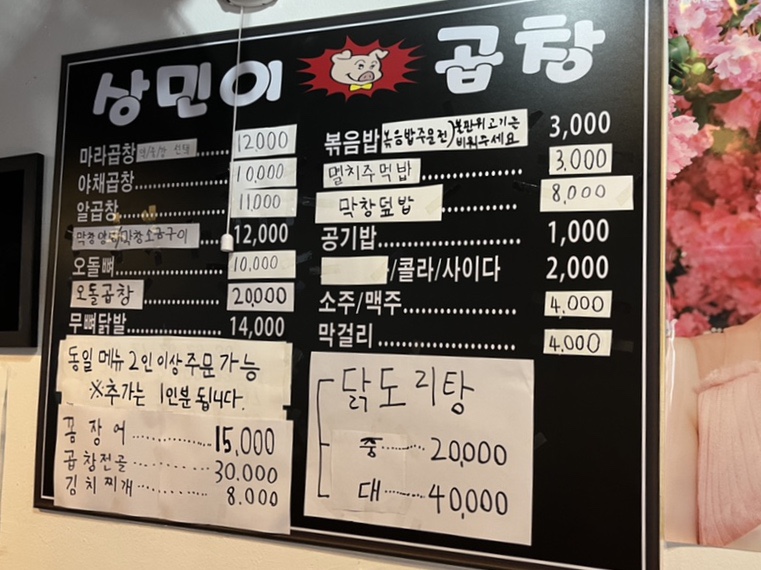 상민이 곱창
마라곱창 12,000
야채곱창 10,000
알곱창 11,000
막창양념/막창소금구이 12,000
오돌뼈 10,000
오돌곱창 20,000
무뼈닭발 14,000
동일 메뉴 2인이상 주문 가능
※추가는 1인분 됩니다.
꼼장어 15,000
곱창전골 30.000
김치찌개 8.000
볶음밥 볶음밥주문전) 불판위고기는 비워주세요 3,000
멸치주먹밥 3,000
막창덮밥 8,000
공기밥 1,000
/콜라/사이다 2,000
소주/맥주 4,000
막걸리 4,000
닭도리탕
중 20,000
대 40,000